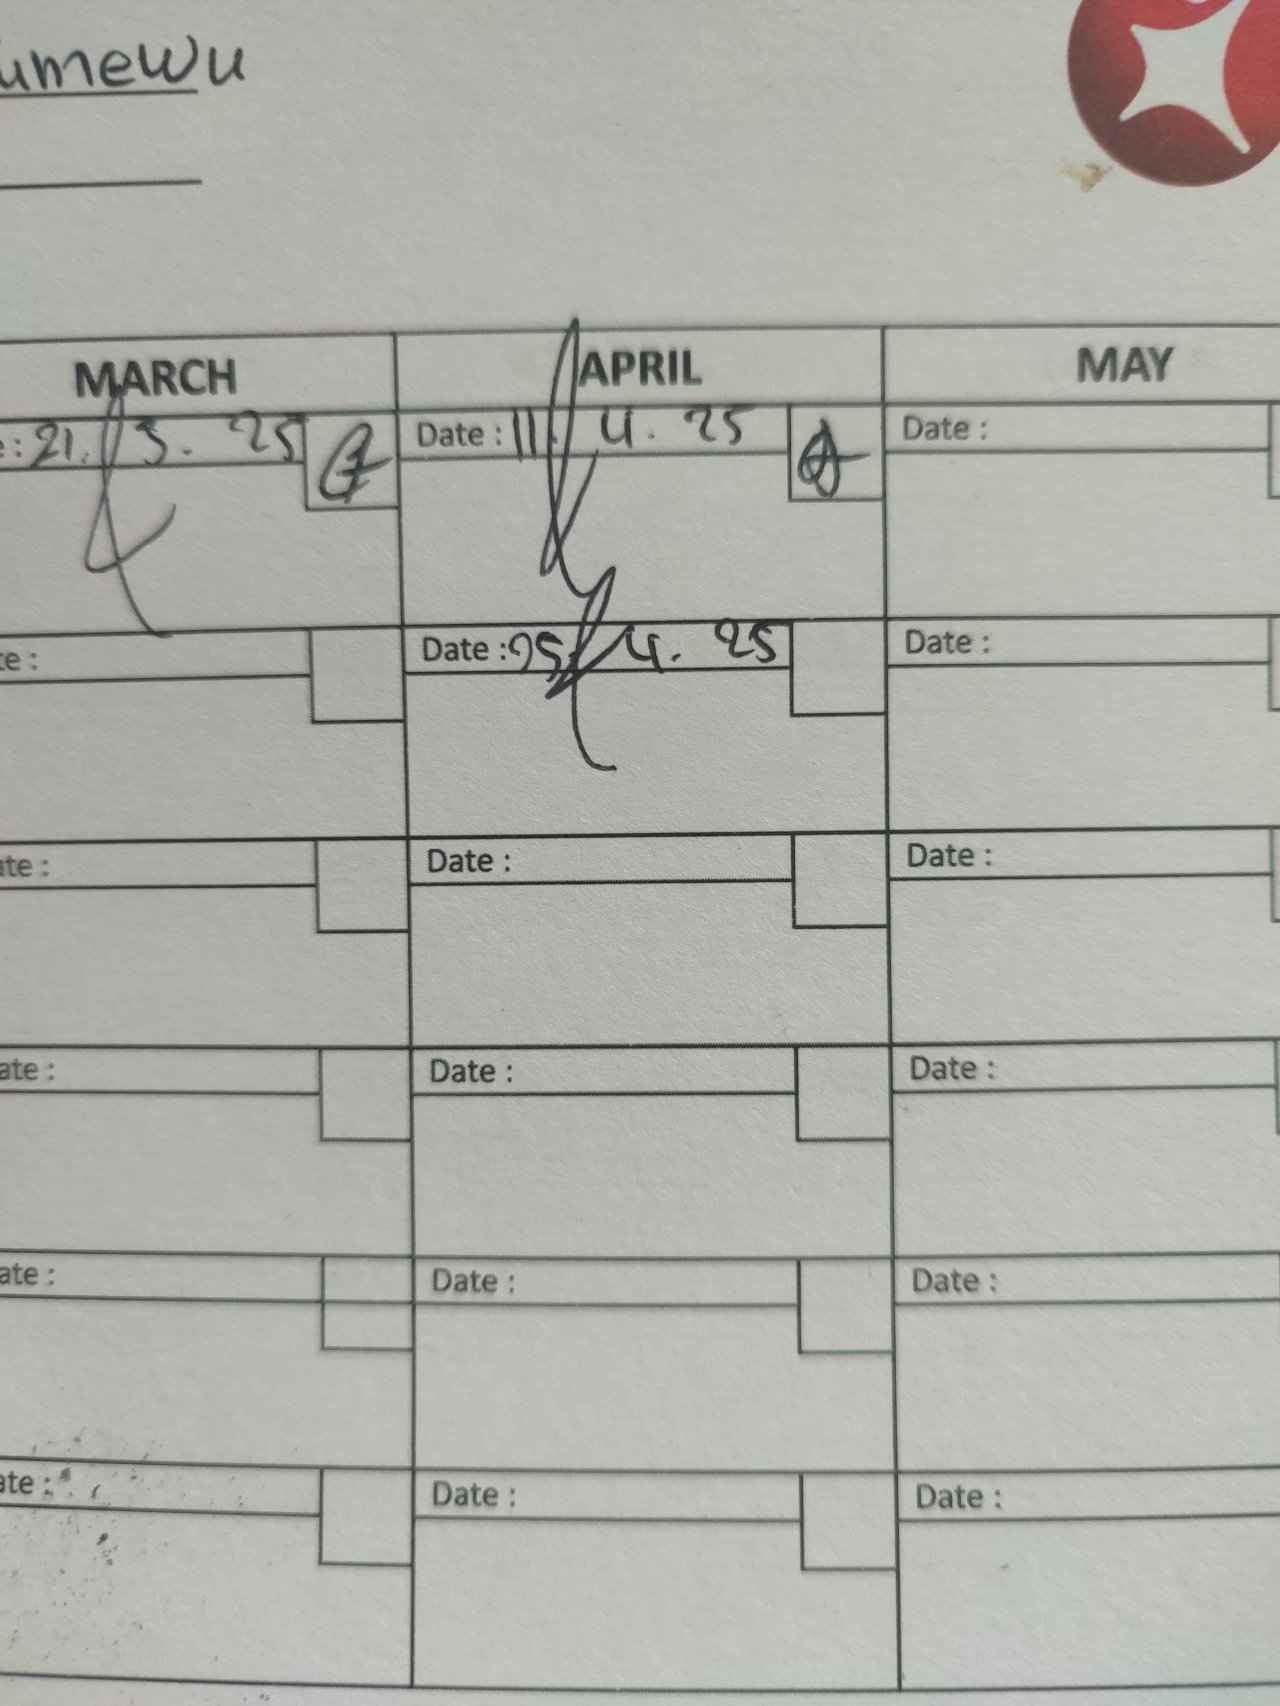 umewu
MARCH APRIL MAY
e : 21. 3. 25 Date : 11. 4. 25 Date :
te : Date : 25. 4. 25 Date :
ate : Date : Date :
ate : Date : Date :
ate : Date : Date :
ate : Date : Date :